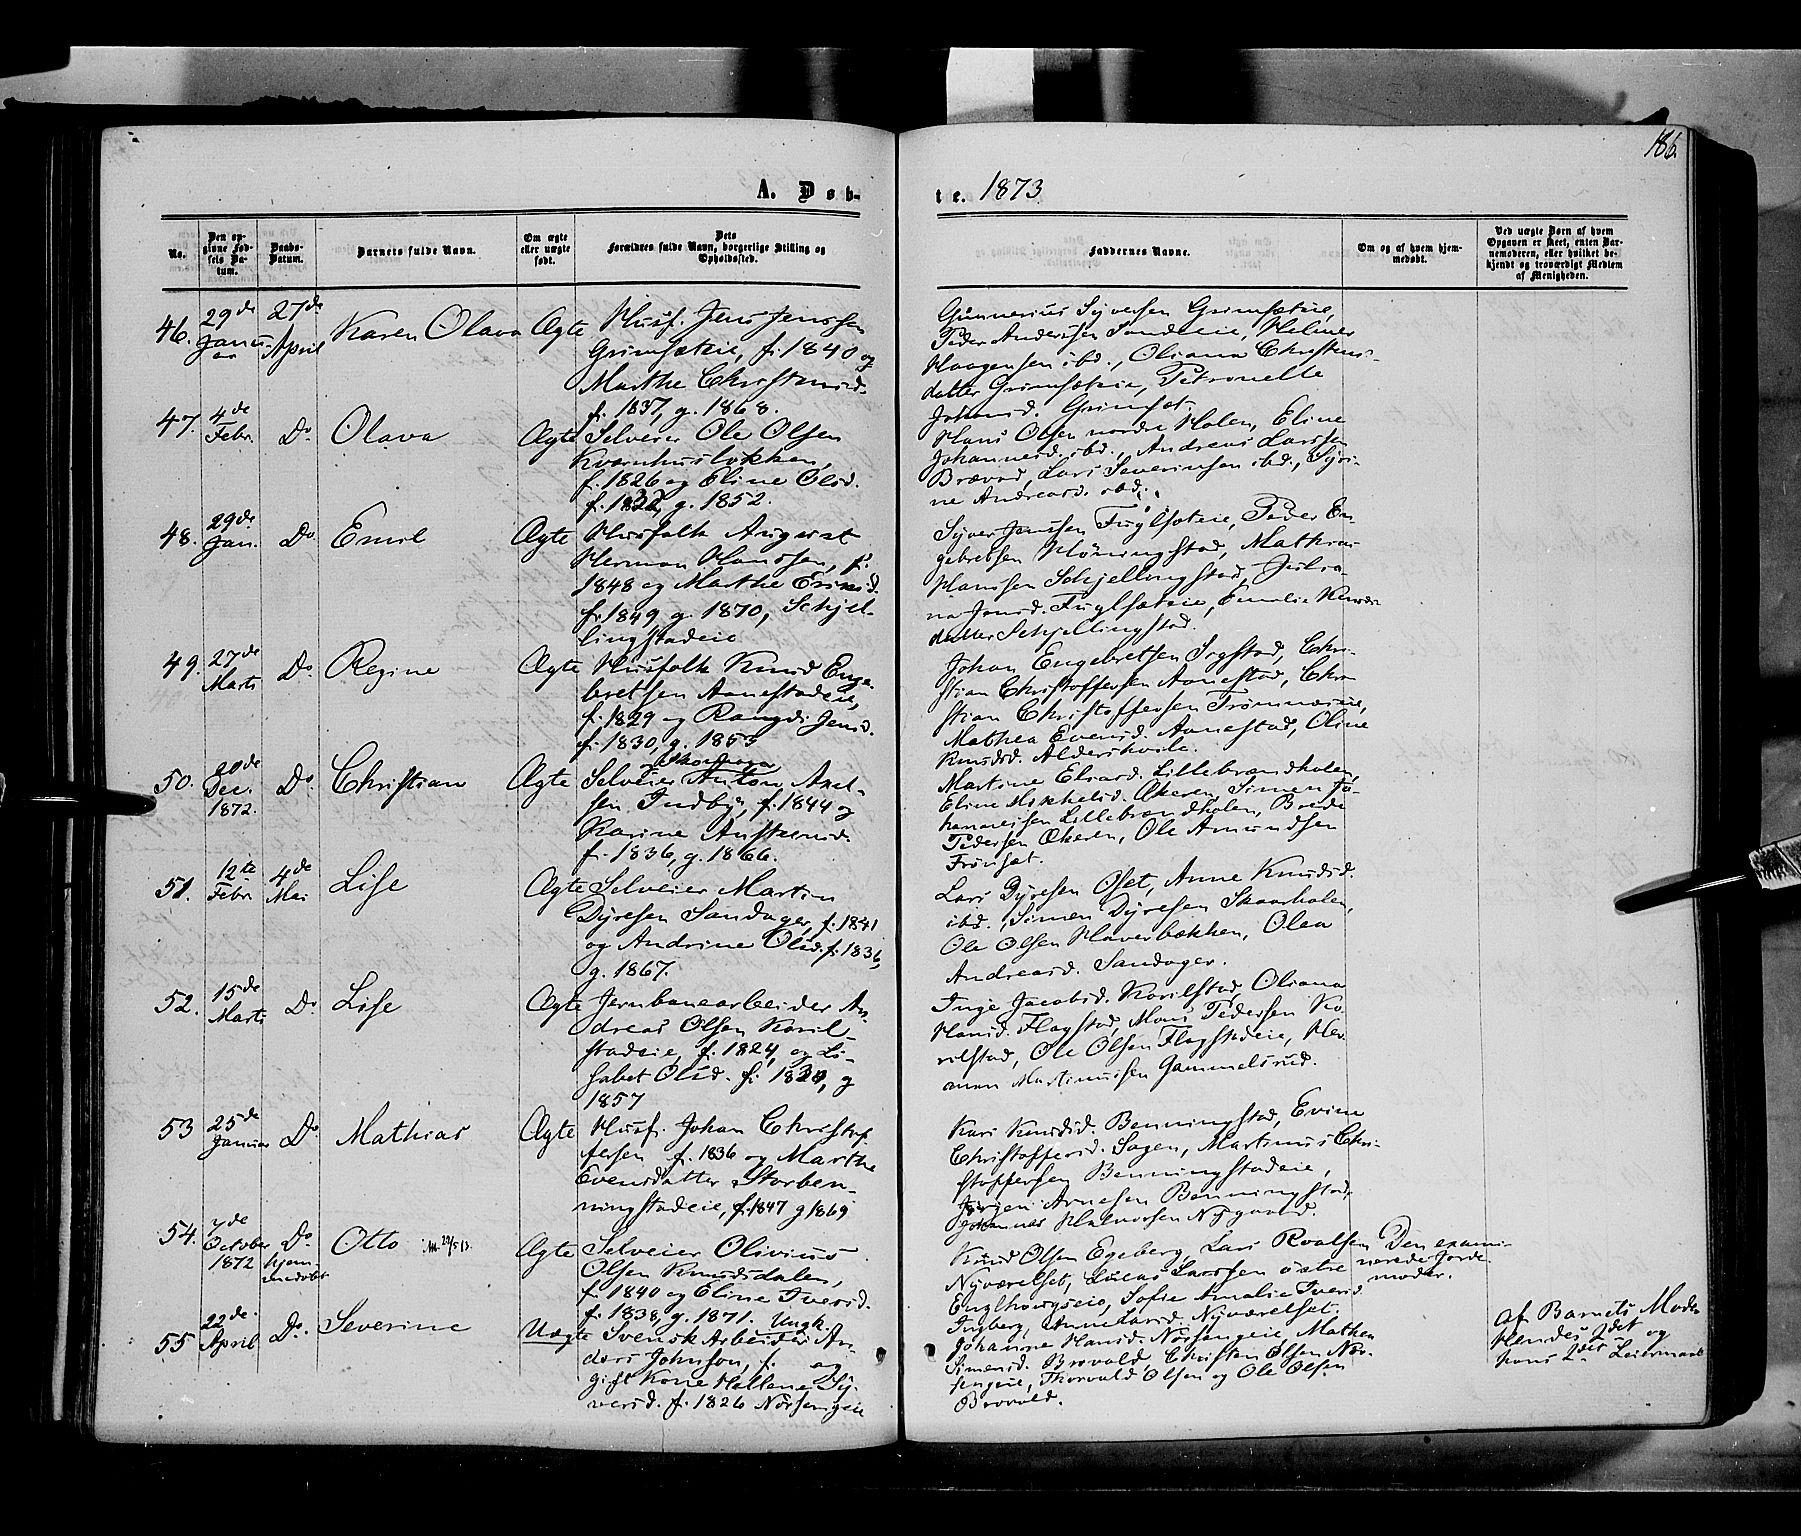 186
A. Døb-
te. 1873
No.
Den op-
givne Fød-
sels Da-
tum.
Daabs-
Datum.
Barnets fulde Navn.
Om ægte
eller uægte
født.
Dets
Forældres fulde Navn, borgerlige Stilling og
Opholdssted.
Faddernes Navne.
Om og af hvem hjem-
medøbt.
Ved uægte Børn af hvem
Opgaven er skeet, enten Bar-
nemoderen, eller hvilket be-
kjendt og troværdigt Medlem
af Menigheden.
46.
29de
Janu-
ar
27de
April
Karen Olava
Ægte
Husf. Jens Jenssen
Grimsæteie, f. 1840 og
Marthe Christensd.
f. 1837, g. 1868.
Gunnerius Syversen Grimsæteie,
Peder Andersen Sandeie, Helmer
Haagensen ibd., Oliana Christens-
datter Grimsæteie, Petronelle
Johansd. Grimsæt.
47.
4de
Febr.
Do
Olava
Ægte
Selveier Ole Olsen
Kværnhusløkken,
f. 1826 og Eline Olsd.
f. 1832, g. 1852.
Hans Olsen nordre Holen, Eline
Johannesd. ibd., Andreas Larssen
Brovod, Lars Severinsen ibd., Syri-
ne Andreasd. ibd.
48.
29de
Jan.
Do
Emil
Ægte
Husfolk August
Herman Hanssen, f.
1848 og Marthe Eriksd.
f. 1849 g. 1870, Schjel-
lingstadeie
Syver Jenssen Fuglsæteie, Peder En-
gebretsen Høningstad, Mathias
Hanssen Schjellingstad, Julia-
na Jensd. Fuglsæteie, Emelie Knuds-
datter Schjellingstad.
49.
27de
Marts
Do
Regine
Ægte
Husfolk Knud Enge-
bretsen Aanestadeie,
f. 1829 og Rangdi Jensd.
f. 1830, g. 1853
Johan Engebretsen Sogstad, Chri-
stian Christoffersen Aanestad, Chri-
stian Christoffersen Trømnæseie,
Mathea Evensd. Aanestad, Oline
Knudsd. Aldershvile.
50.
20de
Dec.
1872.
Do
Christian
Ægte
Selveier Anton Axel-
sen Indby, f. 1844 og
Karine Anstensd.
f. 1836, g. 1866.
Martine Elvasd. Lillebrændholen,
Eline Mikkelsd. Økeren, Simen Jo-
hannesen Lillebrændholen, Brede
Pedersen Økeren, Ole Amundsen
Frønsæt.
51.
12te
Febr.
4de
Mai
Lise
Ægte
Selveier Martin
Dyresen Sandager, f. 1841
og Andrine Olsd. f. 1836,
g. 1867.
Lars Dyresen Oset, Anne Knudsd.
ibd., Simen Dyresen Skaarholen,
Ole Olsen Haverbækken, Olea
Andreasd. Sandager.
52.
15de
Marts
Do
Lise
Ægte
Jernbanearbeider An-
dreas Olsen Koril-
stadeie, f. 1824, og Li-
sabet Olsd. f. 1830, g
1857
Inge Jacobsd. Korilstad, Oliana
Hansd. Flagstad, Mons Pedersen Ko-
rilstad, Ole Olsen Flagstadeie, Her-
man Martinusen Gammelsrud.
53
25de
Januar
Do
Mathias
Ægte
Husf. Johan Christof-
fersen f. 1836 og Marthe
Evensdatter Storben-
ningstadeie, f. 1847 g 1869
Kari Knudsd. Benningstad, Evine
Christoffersd. Sagen, Martinus Chri-
stoffersen Benningstadeie,
Jørgen Arnesen Benningstad,
Johannes Halvorsen Nygaard.
54.
7de
October
1872
Do
hjem-
medøbt
Otto
Ægte
Selveier Olivius
Olsen Knudsdalen,
f. 1840 og Eline Iversd.
f. 1838, g. 1871.
Knud Olsen Egeberg, Lars Roalsen
Nyværelset, Lucas Larssen østre
Englhougseie, Sofie Amalie Iversd.
Ingberg, Anne Larsd. Nyværelset.
Den exami-
nerede Jorde-
moder.
55
22de
April
Do.
Severine
Uægte
Ungk.
Svensk Arbeider An-
ders Johnson, f. og
gift Kone Hellene Sy-
versd. f. 1826 Norsengeie
Johanne Hansd. Norsengeie, Mathea
Simensd. Brovold, Christen Olsen Nor-
sengeie, Thorvald Olsen og Ole Olsen
Brovold.
af Barnets Moder
Hendes 2det og
hans 2det Leiermaal